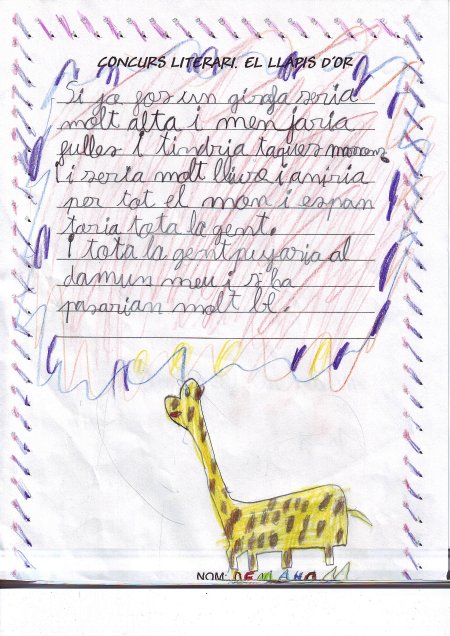 CONCURS LITERARI. EL LLAPIS D'OR
Si jo fos un girafa seria
molt alta i menjaria
fulles i tindria taques marrons
i seria molt lliure i aniria
per tot el mon i espan
taria tota la gent.
I tota la gent pujaria al
damun meu i s ha
pasarian molt bé.
NOM: